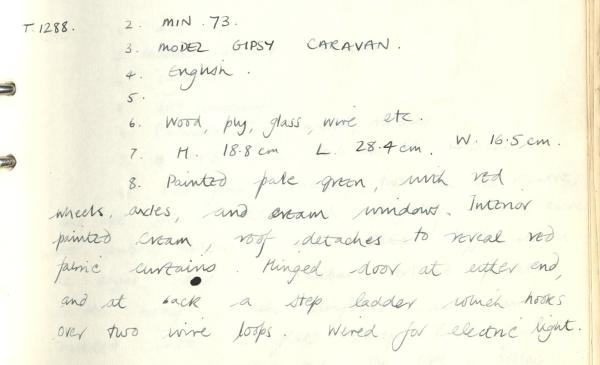 T.1288. 2. MIN .73.
3. MODEL GIPSY CARAVAN.
4. English.
5.
6. Wood, ply, glass, wire etc.
7. H. 18.8cm L. 28.4cm. W. 16.5cm.
8. Painted pale green, with red
wheels, axles, and cream windows. Interior
painted cream, roof detaches to reveal red
fabric curtains. Hinged door at either end,
and at back a step ladder which hooks
over two wire loops. Wired for electric light.